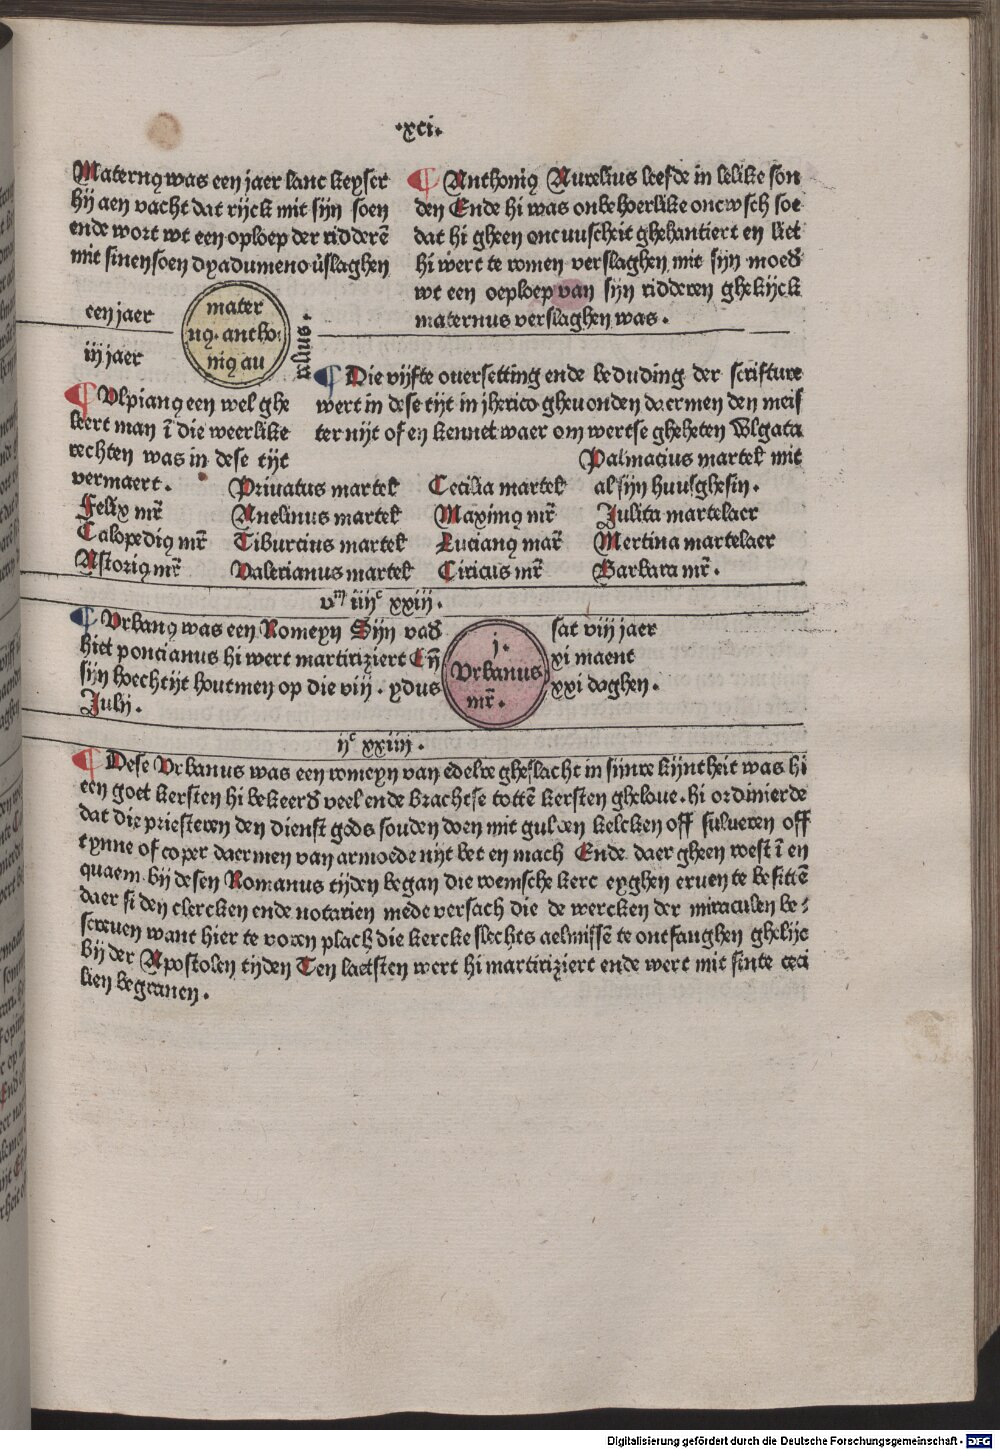 .xci.
Maternꝯ was een jaer lanc keyser
hij aen vacht dat rijck mit sijn soen
ende wort wt een oploep der ridderē
mit sinen soen dyadumeno v̉slaghen
¶ Anthoniꝯ Aurelius leefde in lelike son
den Ende hi was onbehoerlike oncwsch soe
dat hi gheen oncuuscheit ghehantiert en liet
hi wert te romen verslaghen mit sijn moed̉
wt een oeploep van sijn ridderen ghelijck
maternus verslaghen was.
een jaer
iij jaer
mater
nꝯ. antho
niꝯ au
relius.
¶ Die vijfte ouersetting ende beduding der scrifture
wert in dese tijt in jherico gheuonden daermen den meis
ter nijt of en kennet waer om wertse gheheten Wlgata
¶ Vlpianꝯ een wel ghe
leert man ī die weerlike
rechten was in dese tijt
vermaert.
Felix mr̄
Calopediꝯ mr̄
Astoriꝯ mr̄
Priuatus martel̉
Anelinus martel̉
Tiburcius martel̉
Valerianus martel̉
Cecilia martel̉
Maximꝯ mr̄
Lucianꝯ mar̄
Ciricus mr̄
Palmacius martel̉ mit
al sijn huusghesin.
Julita martelaer
Mertina martelaer
Barbara mr̄.
vm iiijc xxiij.
¶ Vrbanꝯ was een Romeyn Sijn vad̉
hiet poncianus hi wert martiriziert En̄
sijn hoechtijt houtmen op die viij. ydus
Julij.
j.
Vrbanus
mr̄.
sat viij jaer
xi maent
xxi daghen.
ijc xxiiij.
¶ Dese Vrbanus was een romeyn van edelre gheslacht in sijnre kijntheit was hi
een goet kersten hi bekeerd̉ veel ende brachtse tottē kersten gheloue. hi ordinierde
dat die priesteren den dienst gods souden doen mit gulden kelcken off sulueren off
tynne of coper daermen van armoede nijt bet en mach Ende daer gheen roest ī en
quaem. bij desen Romanus tijden began die roemsche kerc eyghen eruen te besittē
daer si den clercken ende notarien mede versach die de wercken der miraculen be⸗
screuen want hier te voren plach die kercke slechts aelmissē te ontfanghen ghelijc
bij der Apostolen tijden Ten laetsten wert hi martiriziert ende wert mit sinte ceci
lien begrauen.
Digitalisierung gefördert durch die Deutsche Forschungsgemeinschaft - DFG